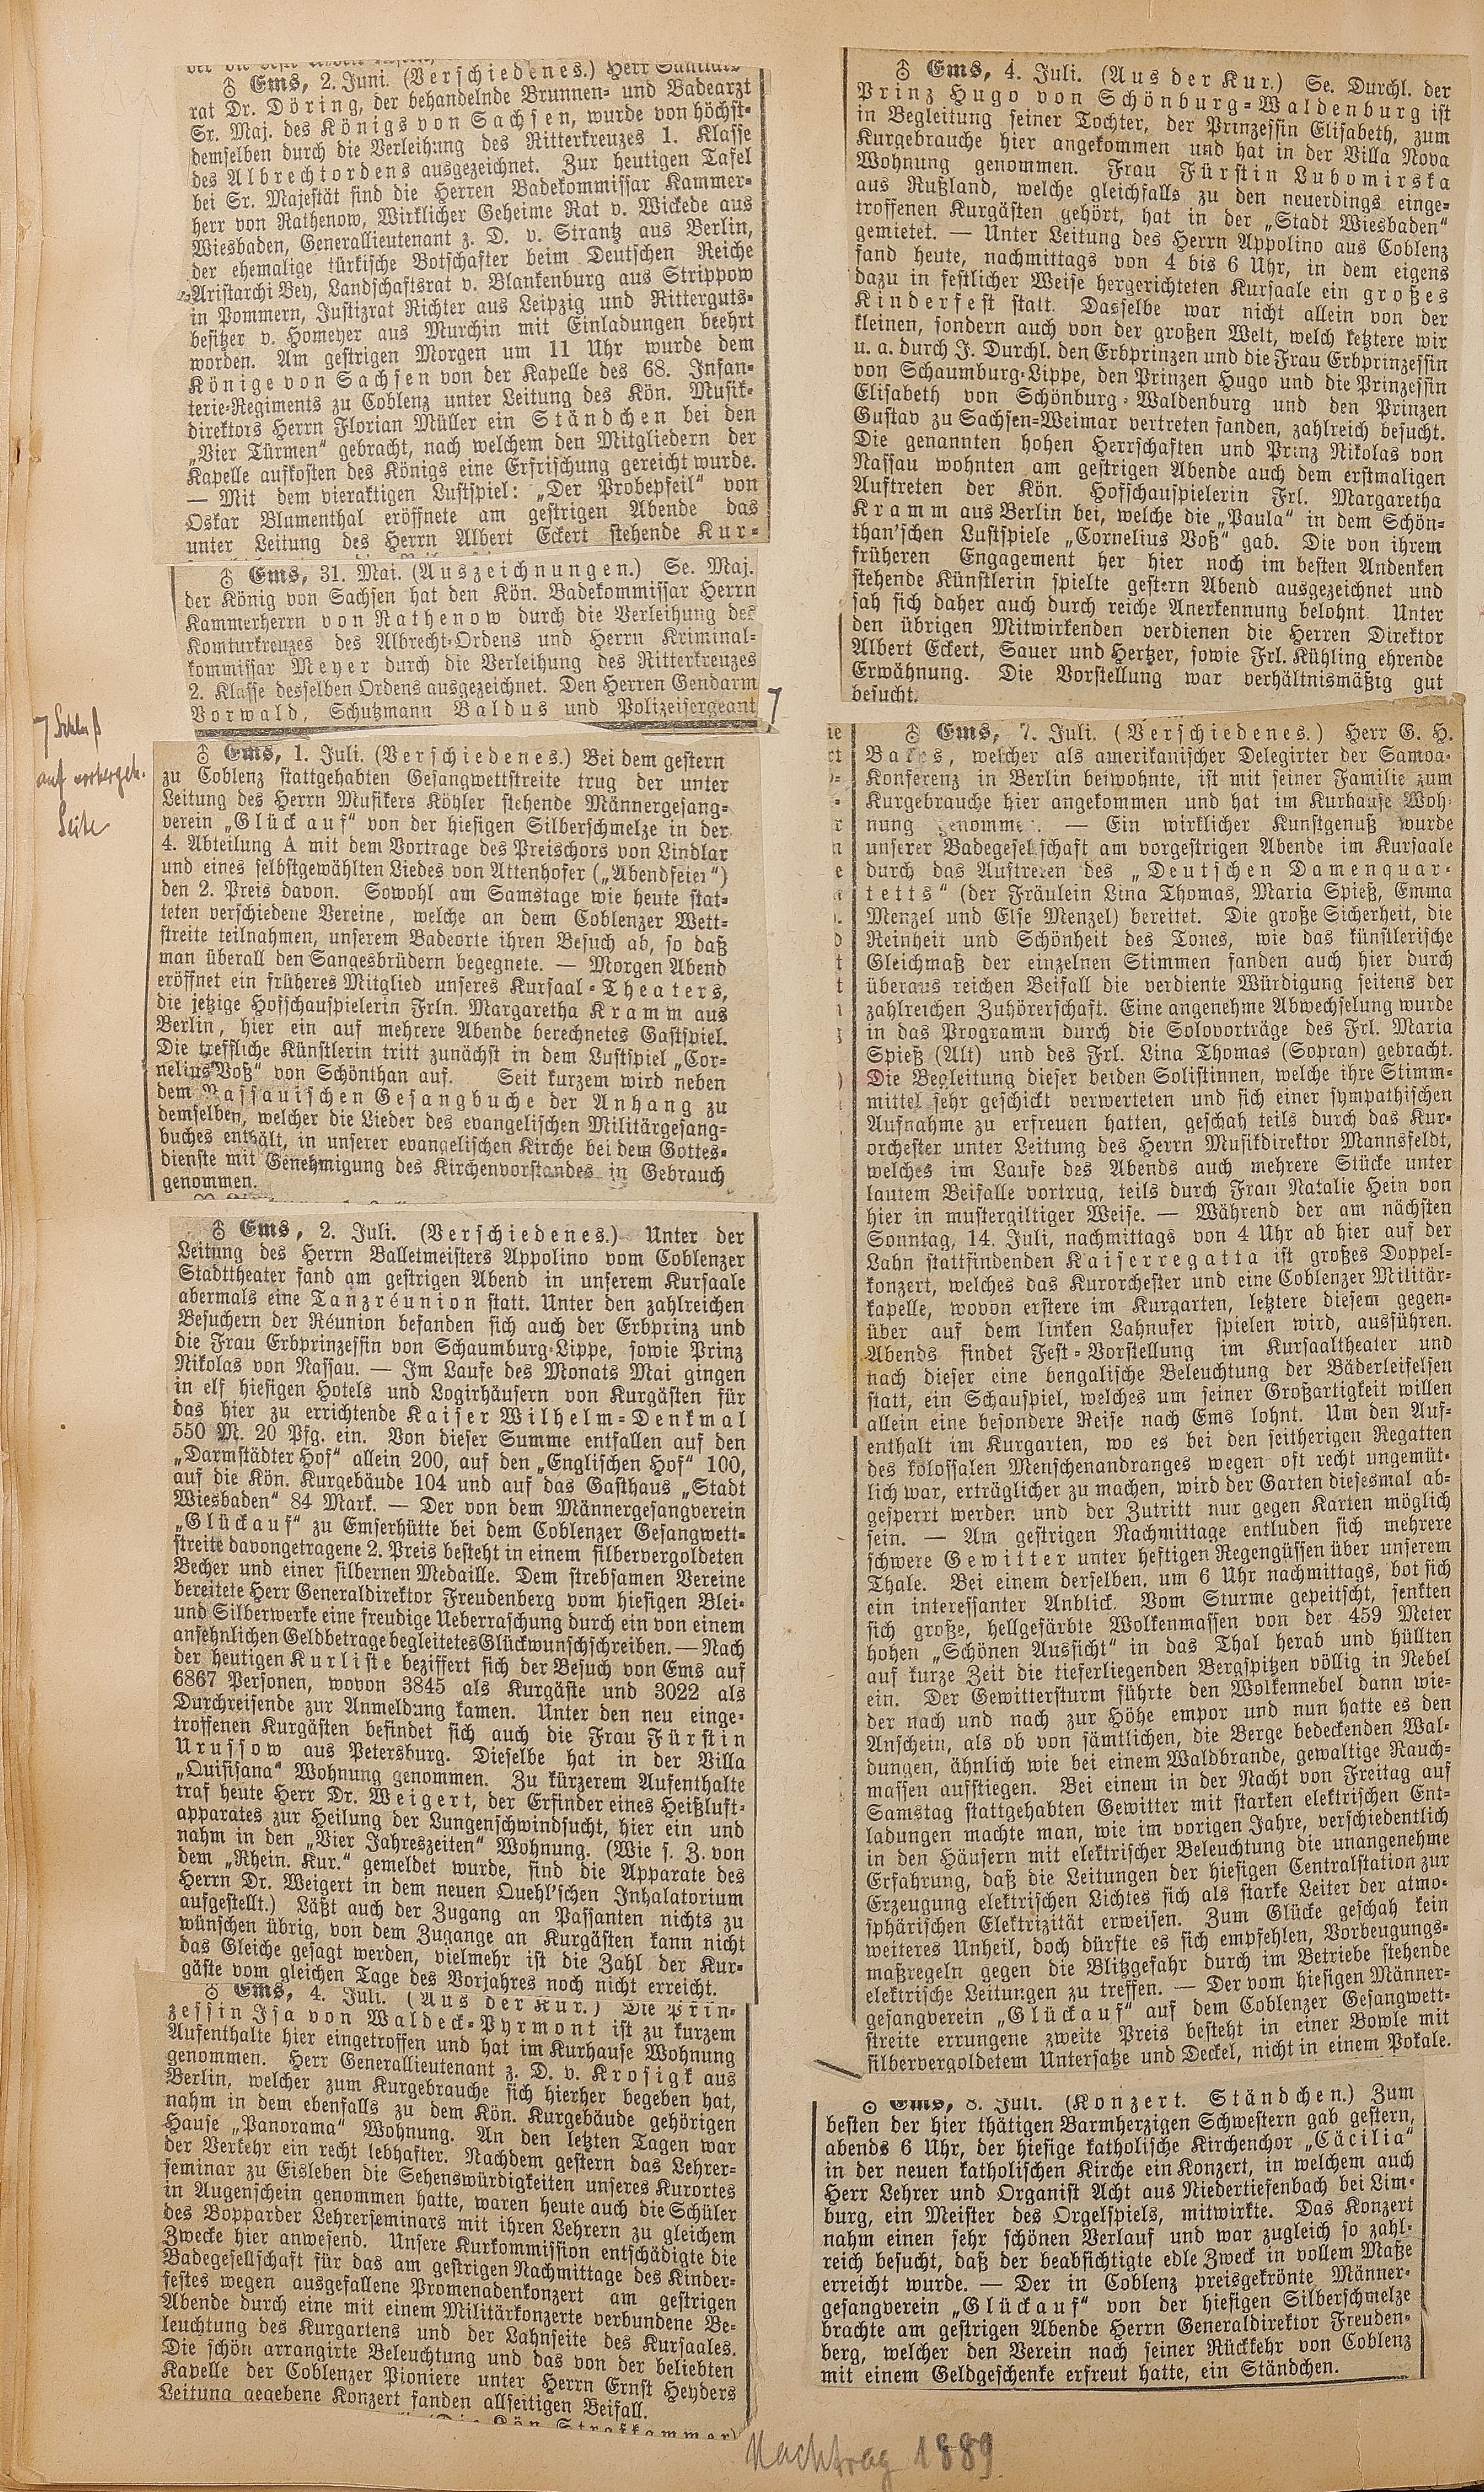 ♁ Ems, 2. Juni. (Verschiedenes.) Herr Sanitäts-
rat Dr. Döring, der behandelnde Brunnen- und Badearzt
Sr. Maj. des Königs von Sachsen, wurde von höchst-
demselben durch die Verleihung des Ritterkreuzes 1. Klasse
des Albrechtordens ausgezeichnet. Zur heutigen Tafel
bei Sr. Majestät sind die Herren Badekommissar Kammer-
herr von Rathenow, Wirklicher Geheime Rat v. Wickede aus
Wiesbaden, Generallieutenant z. D. v. Strantz aus Berlin,
der ehemalige türkische Botschafter beim Deutschen Reiche
Aristarchi Bey, Landschaftsrat v. Blankenburg aus Strippow
in Pommern, Justizrat Richter aus Leipzig und Ritterguts-
besitzer v. Homeyer aus Murchin mit Einladungen beehrt
worden. Am gestrigen Morgen um 11 Uhr wurde dem
Könige von Sachsen von der Kapelle des 68. Infan-
terie-Regiments zu Coblenz unter Leitung des Kön. Musik-
direktors Herrn Florian Müller ein Ständchen bei den
„Vier Türmen“ gebracht, nach welchem den Mitgliedern der
Kapelle aufkosten des Königs eine Erfrischung gereicht wurde.
— Mit dem vieraktigen Lustspiel: „Der Probepfeil“ von
Oskar Blumenthal eröffnete am gestrigen Abende das
unter Leitung des Herrn Albert Eckert stehende Kur-
♁ Ems, 31. Mai. (Auszeichnungen.) Se. Maj.
der König von Sachsen hat den Kön. Badekommissar Herrn
Kammerherrn von Rathenow durch die Verleihung des
Komturkreuzes des Albrecht-Ordens und Herrn Kriminal-
kommissar Meyer durch die Verleihung des Ritterkreuzes
2. Klasse desselben Ordens ausgezeichnet. Den Herren Gendarm
Vorwald, Schutzmann Baldus und Polizeisergeant
Schluß
auf vorhergeh.
Seite
♁ Ems, 1. Juli. (Verschiedenes.) Bei dem gestern
zu Coblenz stattgehabten Gesangwettstreite trug der unter
Leitung des Herrn Musikers Köhler stehende Männergesang-
verein „Glückauf“ von der hiesigen Silberschmelze in der
4. Abteilung A mit dem Vortrage des Preischors von Lindlar
und eines selbstgewählten Liedes von Attenhofer („Abendfeier“)
den 2. Preis davon. Sowohl am Samstage wie heute stat-
teten verschiedene Vereine, welche an dem Coblenzer Wett-
streite teilnahmen, unserem Badeorte ihren Besuch ab, so daß
man überall den Sangesbrüdern begegnete. — Morgen Abend
eröffnet ein früheres Mitglied unseres Kursaal-Theaters,
die jetzige Hofschauspielerin Frln. Margaretha Kramm aus
Berlin, hier ein auf mehrere Abende berechnetes Gastspiel.
Die treffliche Künstlerin tritt zunächst in dem Lustspiel „Cor-
nelius Voß“ von Schönthan auf. Seit kurzem wird neben
dem Nassauischen Gesangbuche der Anhang zu
demselben, welcher die Lieder des evangelischen Militärgesang-
buches enthält, in unserer evangelischen Kirche bei dem Gottes-
dienste mit Genehmigung des Kirchenvorstandes in Gebrauch
genommen.
♁ Ems, 2. Juli. (Verschiedenes.) Unter der
Leitung des Herrn Balletmeisters Appolino vom Coblenzer
Stadttheater fand am gestrigen Abend in unserem Kursaale
abermals eine Tanzréunion statt. Unter den zahlreichen
Besuchern der Réunion befanden sich auch der Erbprinz und
die Frau Erbprinzessin von Schaumburg-Lippe, sowie Prinz
Nikolas von Nassau. — Im Laufe des Monats Mai gingen
in elf hiesigen Hotels und Logirhäusern von Kurgästen für
das hier zu errichtende Kaiser Wilhelm-Denkmal
550 M. 20 Pfg. ein. Von dieser Summe entfallen auf den
„Darmstädter Hof“ allein 200, auf den „Englischen Hof“ 100,
auf die Kön. Kurgebäude 104 und auf das Gasthaus „Stadt
Wiesbaden“ 84 Mark. — Der von dem Männergesangverein
„Glückauf“ zu Emserhütte bei dem Coblenzer Gesangwett-
streite davongetragene 2. Preis besteht in einem silbervergoldeten
Becher und einer silbernen Medaille. Dem strebsamen Vereine
bereitete Herr Generaldirektor Freudenberg vom hiesigen Blei-
und Silberwerke eine freudige Ueberraschung durch ein von einem
ansehnlichen Geldbetrage begleitetes Glückwunschschreiben. — Nach
der heutigen Kurliste beziffert sich der Besuch von Ems auf
6867 Personen, wovon 3845 als Kurgäste und 3022 als
Durchreisende zur Anmeldung kamen. Unter den neu einge-
troffenen Kurgästen befindet sich auch die Frau Fürstin
Urussow aus Petersburg. Dieselbe hat in der Villa
„Quisisana“ Wohnung genommen. Zu kürzerem Aufenthalte
traf heute Herr Dr. Weigert, der Erfinder eines Heißluft-
apparates zur Heilung der Lungenschwindsucht, hier ein und
nahm in den „Vier Jahreszeiten“ Wohnung. (Wie s. Z. von
dem „Rhein. Kur.“ gemeldet wurde, sind die Apparate des
Herrn Dr. Weigert in dem neuen Quehl'schen Inhalatorium
aufgestellt.) Läßt auch der Zugang an Passanten nichts zu
wünschen übrig, von dem Zugange an Kurgästen kann nicht
das Gleiche gesagt werden, vielmehr ist die Zahl der Kur-
gäste vom gleichen Tage des Vorjahres noch nicht erreicht.
♁ Ems, 4. Juli. (Aus der Kur.) Die Prin-
zessin Isa von Waldeck-Pyrmont ist zu kurzem
Aufenthalte hier eingetroffen und hat im Kurhause Wohnung
genommen. Herr Generallieutenant z. D. v. Krosigk aus
Berlin, welcher zum Kurgebrauche sich hierher begeben hat,
nahm in dem ebenfalls zu dem Kön. Kurgebäude gehörigen
Hause „Panorama“ Wohnung. An den letzten Tagen war
der Verkehr ein recht lebhafter. Nachdem gestern das Lehrer-
seminar zu Eisleben die Sehenswürdigkeiten unseres Kurortes
in Augenschein genommen hatte, waren heute auch die Schüler
des Bopparder Lehrerseminars mit ihren Lehrern zu gleichem
Zwecke hier anwesend. Unsere Kurkommission entschädigte die
Badegesellschaft für das am gestrigen Nachmittage des Kinder-
festes wegen ausgefallene Promenadenkonzert am gestrigen
Abende durch eine mit einem Militärkonzerte verbundene Be-
leuchtung des Kurgartens und der Lahnseite des Kursaales.
Die schön arrangirte Beleuchtung und das von der beliebten
Kapelle der Coblenzer Pioniere unter Herrn Ernst Heyders
Leitung gegebene Konzert fanden allseitigen Beifall.
(Die Kön. Strafkammer)
♁ Ems, 4. Juli. (Aus der Kur.) Se. Durchl. der
Prinz Hugo von Schönburg-Waldenburg ist
in Begleitung seiner Tochter, der Prinzessin Elisabeth, zum
Kurgebrauche hier angekommen und hat in der Villa Nova
Wohnung genommen. Frau Fürstin Lubomirska
aus Rußland, welche gleichfalls zu den neuerdings einge-
troffenen Kurgästen gehört, hat in der „Stadt Wiesbaden“
gemietet. — Unter Leitung des Herrn Appolino aus Coblenz
fand heute, nachmittags von 4 bis 6 Uhr, in dem eigens
dazu in festlicher Weise hergerichteten Kursaale ein großes
Kinderfest statt. Dasselbe war nicht allein von der
kleinen, sondern auch von der großen Welt, welch letztere wir
u. a. durch J. Durchl. den Erbprinzen und die Frau Erbprinzessin
von Schaumburg-Lippe, den Prinzen Hugo und die Prinzessin
Elisabeth von Schönburg-Waldenburg und den Prinzen
Gustav zu Sachsen-Weimar vertreten fanden, zahlreich besucht.
Die genannten hohen Herrschaften und Prinz Nikolas von
Nassau wohnten am gestrigen Abende auch dem erstmaligen
Auftreten der Kön. Hofschauspielerin Frl. Margaretha
Kramm aus Berlin bei, welche die „Paula“ in dem Schön-
than'schen Lustspiele „Cornelius Voß“ gab. Die von ihrem
früheren Engagement her hier noch im besten Andenken
stehende Künstlerin spielte gestern Abend ausgezeichnet und
sah sich daher auch durch reiche Anerkennung belohnt. Unter
den übrigen Mitwirkenden verdienen die Herren Direktor
Albert Eckert, Sauer und Hertzer, sowie Frl. Kühling ehrende
Erwähnung. Die Vorstellung war verhältnismäßig gut
besucht.
♁ Ems, 7. Juli. (Verschiedenes.) Herr G. H.
Bates, welcher als amerikanischer Delegirter der Samoa-
Konferenz in Berlin beiwohnte, ist mit seiner Familie zum
Kurgebrauche hier angekommen und hat im Kurhause Woh-
nung genommen. — Ein wirklicher Kunstgenuß wurde
unserer Badegesellschaft am vorgestrigen Abende im Kursaale
durch das Auftreten des „Deutschen Damenquar-
tetts“ (der Fräulein Lina Thomas, Maria Spieß, Emma
Menzel und Else Menzel) bereitet. Die große Sicherheit, die
Reinheit und Schönheit des Tones, wie das künstlerische
Gleichmaß der einzelnen Stimmen fanden auch hier durch
überaus reichen Beifall die verdiente Würdigung seitens der
zahlreichen Zuhörerschaft. Eine angenehme Abwechselung wurde
in das Programm durch die Solovorträge des Frl. Maria
Spieß (Alt) und des Frl. Lina Thomas (Sopran) gebracht.
Die Begleitung dieser beiden Solistinnen, welche ihre Stimm-
mittel sehr geschickt verwerteten und sich einer sympathischen
Aufnahme zu erfreuen hatten, geschah teils durch das Kur-
orchester unter Leitung des Herrn Musikdirektor Mannsfeldt,
welches im Laufe des Abends auch mehrere Stücke unter
lautem Beifalle vortrug, teils durch Frau Natalie Hein von
hier in mustergiltiger Weise. — Während der am nächsten
Sonntag, 14. Juli, nachmittags von 4 Uhr ab hier auf der
Lahn stattfindenden Kaiserregatta ist großes Doppel-
konzert, welches das Kurorchester und eine Coblenzer Militär-
kapelle, wovon erstere im Kurgarten, letztere diesem gegen-
über auf dem linken Lahnufer spielen wird, ausführen.
Abends findet Fest-Vorstellung im Kursaaltheater und
nach dieser eine bengalische Beleuchtung der Bäderleifelsen
statt, ein Schauspiel, welches um seiner Großartigkeit willen
allein eine besondere Reise nach Ems lohnt. Um den Auf-
enthalt im Kurgarten, wo es bei den seitherigen Regatten
des kolossalen Menschenandranges wegen oft recht ungemüt-
lich war, erträglicher zu machen, wird der Garten diesesmal ab-
gesperrt werden und der Zutritt nur gegen Karten möglich
sein. — Am gestrigen Nachmittage entluden sich mehrere
schwere Gewitter unter heftigen Regengüssen über unserem
Thale. Bei einem derselben, um 6 Uhr nachmittags, bot sich
ein interessanter Anblick. Vom Sturme gepeitscht, senkten
sich große, hellgefärbte Wolkenmassen von der 459 Meter
hohen „Schönen Aussicht“ in das Thal herab und hüllten
auf kurze Zeit die tieferliegenden Bergspitzen völlig in Nebel
ein. Der Gewittersturm führte den Wolkennebel dann wie-
der nach und nach zur Höhe empor und nun hatte es den
Anschein, als ob von sämtlichen, die Berge bedeckenden Wal-
dungen, ähnlich wie bei einem Waldbrande, gewaltige Rauch-
massen aufstiegen. Bei einem in der Nacht von Freitag auf
Samstag stattgehabten Gewitter mit starken elektrischen Ent-
ladungen machte man, wie im vorigen Jahre, verschiedentlich
in den Häusern mit elektrischer Beleuchtung die unangenehme
Erfahrung, daß die Leitungen der hiesigen Centralstation zur
Erzeugung elektrischen Lichtes sich als starke Leiter der atmo-
sphärischen Elektrizität erweisen. Zum Glücke geschah kein
weiteres Unheil, doch dürfte es sich empfehlen, Vorbeugungs-
maßregeln gegen die Blitzgefahr durch im Betriebe stehende
elektrische Leitungen zu treffen. — Der vom hiesigen Männer-
gesangverein „Glückauf“ auf dem Coblenzer Gesangwett-
streite errungene zweite Preis besteht in einer Bowle mit
silbervergoldetem Untersatze und Deckel, nicht in einem Pokale.
♁ Ems, 8. Juli. (Konzert. Ständchen.) Zum
besten der hier thätigen Barmherzigen Schwestern gab gestern,
abends 6 Uhr, der hiesige katholische Kirchenchor „Cäcilia“
in der neuen katholischen Kirche ein Konzert, in welchem auch
Herr Lehrer und Organist Acht aus Niedertiefenbach bei Lim-
burg, ein Meister des Orgelspiels, mitwirkte. Das Konzert
nahm einen sehr schönen Verlauf und war zugleich so zahl-
reich besucht, daß der beabsichtigte edle Zweck in vollem Maße
erreicht wurde. — Der in Coblenz preisgekrönte Männer-
gesangverein „Glückauf“ von der hiesigen Silberschmelze
brachte am gestrigen Abende Herrn Generaldirektor Freuden-
berg, welcher den Verein nach seiner Rückkehr von Coblenz
mit einem Geldgeschenke erfreut hatte, ein Ständchen.
Nachtrag 1889